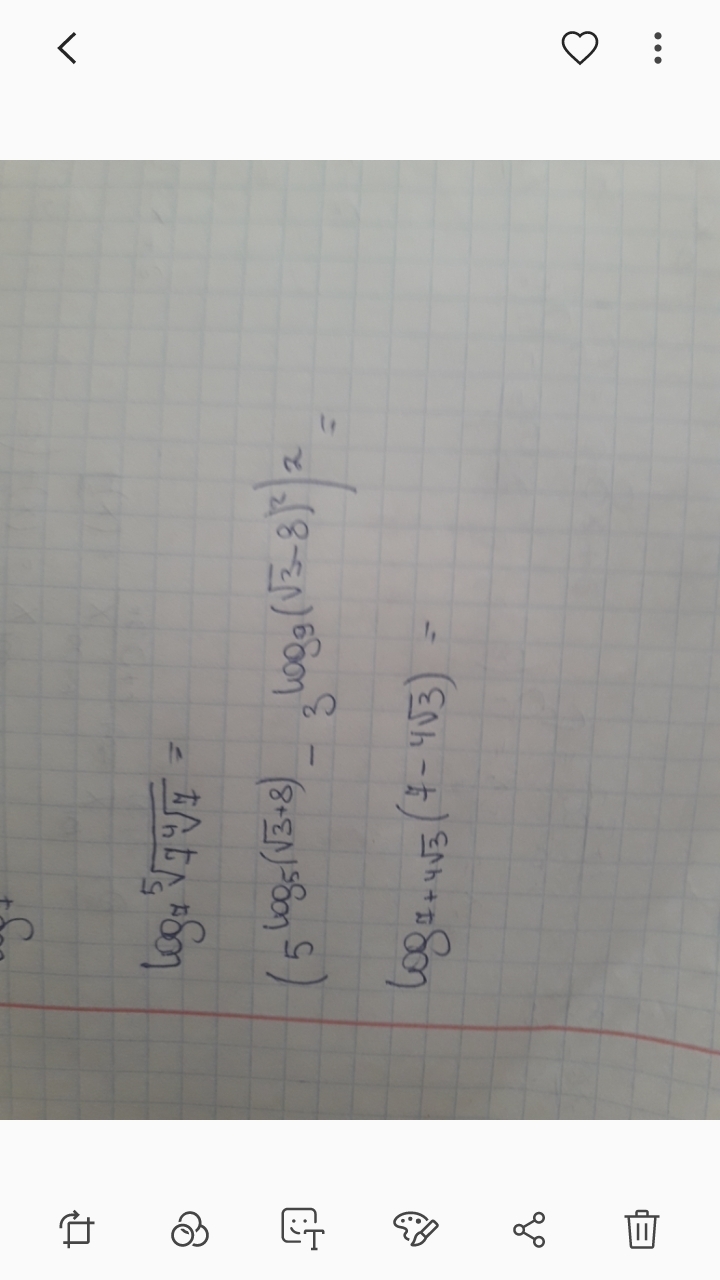 log₇ ⁵√(7 ⁴√7) =
(5^(log₅(√3+8)) - 3^(log₉(√3-8)²))² =
log₇₊₄√₃ (7 - 4√3) =